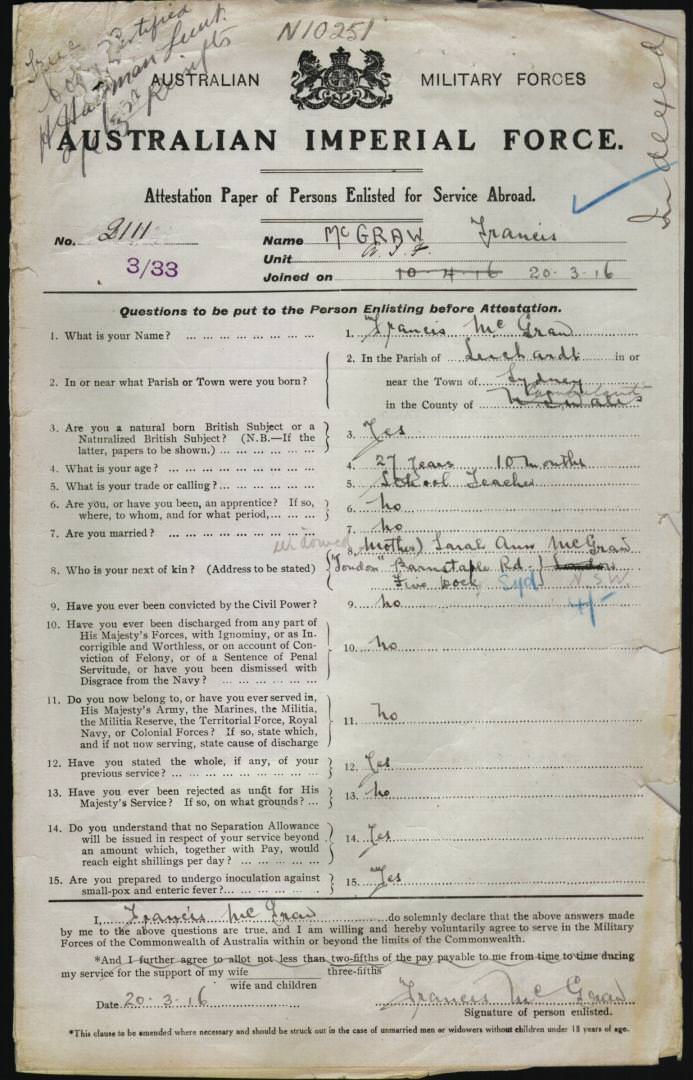 N10251
True
Copy Certified
AUSTRALIAN MILITARY FORCES
Indexed
AUSTRALIAN IMPERIAL FORCE.
Attestation Paper of Persons Enlisted for Service Abroad.
No. 2111 Name McGRAW Francis
3/33 Unit A.I.F.
Joined on 10-4-16 20-3-16
Questions to be put to the Person Enlisting before Attestation.
1. What is your Name? 1. Francis McGraw
2. In or near what Parish or Town were you born? 2. In the Parish of Leichardt in or
near the Town of Sydney
in the County of
3. Are you a natural born British Subject or a
Naturalized British Subject? (N.B.—If the
latter, papers to be shown.) 3. Yes
4. What is your age? 4. 27 years 10 months
5. What is your trade or calling? 5. School Teacher
6. Are you, or have you been, an apprentice? If so,
where, to whom, and for what period, 6. No
7. Are you married? 7. No
widowed 8. Mother) Sarah Ann McGraw
8. Who is your next of kin? (Address to be stated) "London" Barnstaple Rd. London
Five Dock Syd N.S.W.
9. Have you ever been convicted by the Civil Power? 9. No 4/-
10. Have you ever been discharged from any part of
His Majesty's Forces, with Ignominy, or as In-
corrigible and Worthless, or on account of Con-
viction of Felony, or of a Sentence of Penal
Servitude, or have you been dismissed with
Disgrace from the Navy? 10. No
11. Do you now belong to, or have you ever served in,
His Majesty's Army, the Marines, the Militia,
the Militia Reserve, the Territorial Force, Royal
Navy, or Colonial Forces? If so, state which,
and if not now serving, state cause of discharge 11. No
12. Have you stated the whole, if any, of your
previous service? 12. Yes
13. Have you ever been rejected as unfit for His
Majesty's Service? If so, on what grounds? 13. No
14. Do you understand that no Separation Allowance
will be issued in respect of your service beyond
an amount which, together with Pay, would
reach eight shillings per day? 14. Yes
15. Are you prepared to undergo inoculation against
small-pox and enteric fever? 15. Yes
I, Francis McGraw do solemnly declare that the above answers made
by me to the above questions are true, and I am willing and hereby voluntarily agree to serve in the Military
Forces of the Commonwealth of Australia within or beyond the limits of the Commonwealth.
*And I further agree to allot not less than two-fifths of the pay payable to me from time to time during
my service for the support of my wife three-fifths
wife and children
Date 20-3-16 Francis McGraw
Signature of person enlisted.
*This clause to be amended where necessary and should be struck out in the case of unmarried men or widowers without children under 18 years of age.